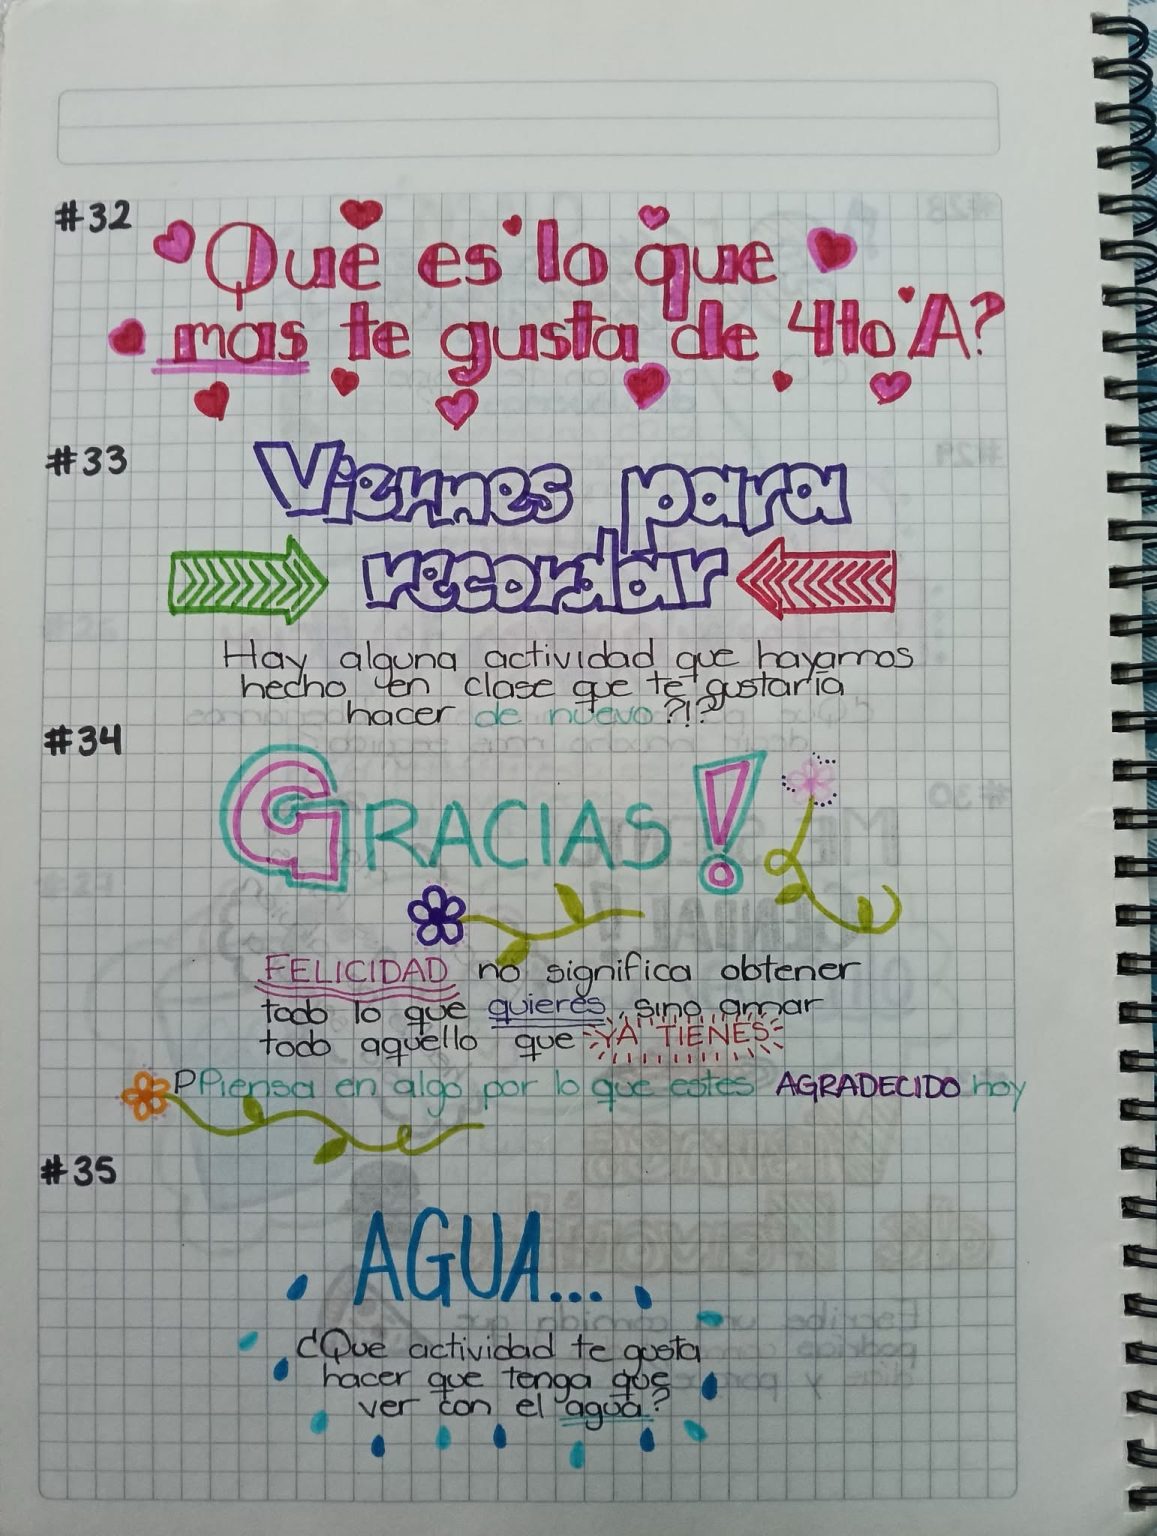 #32
Que es lo que
mas te gusta de 4to A?
#33
Viernes para
recordar
Hay alguna actividad que hayamos
hecho en clase que te gustaría
hacer de nuevo?!?
#34
GRACIAS!
FELICIDAD no significa obtener
todo lo que quieres, sino amar
todo aquello que YA TIENES
PPiensa en algo por lo que estes AGRADECIDO hoy
#35
AGUA...
¿Que actividad te gusta
hacer que tenga que
ver con el agua?